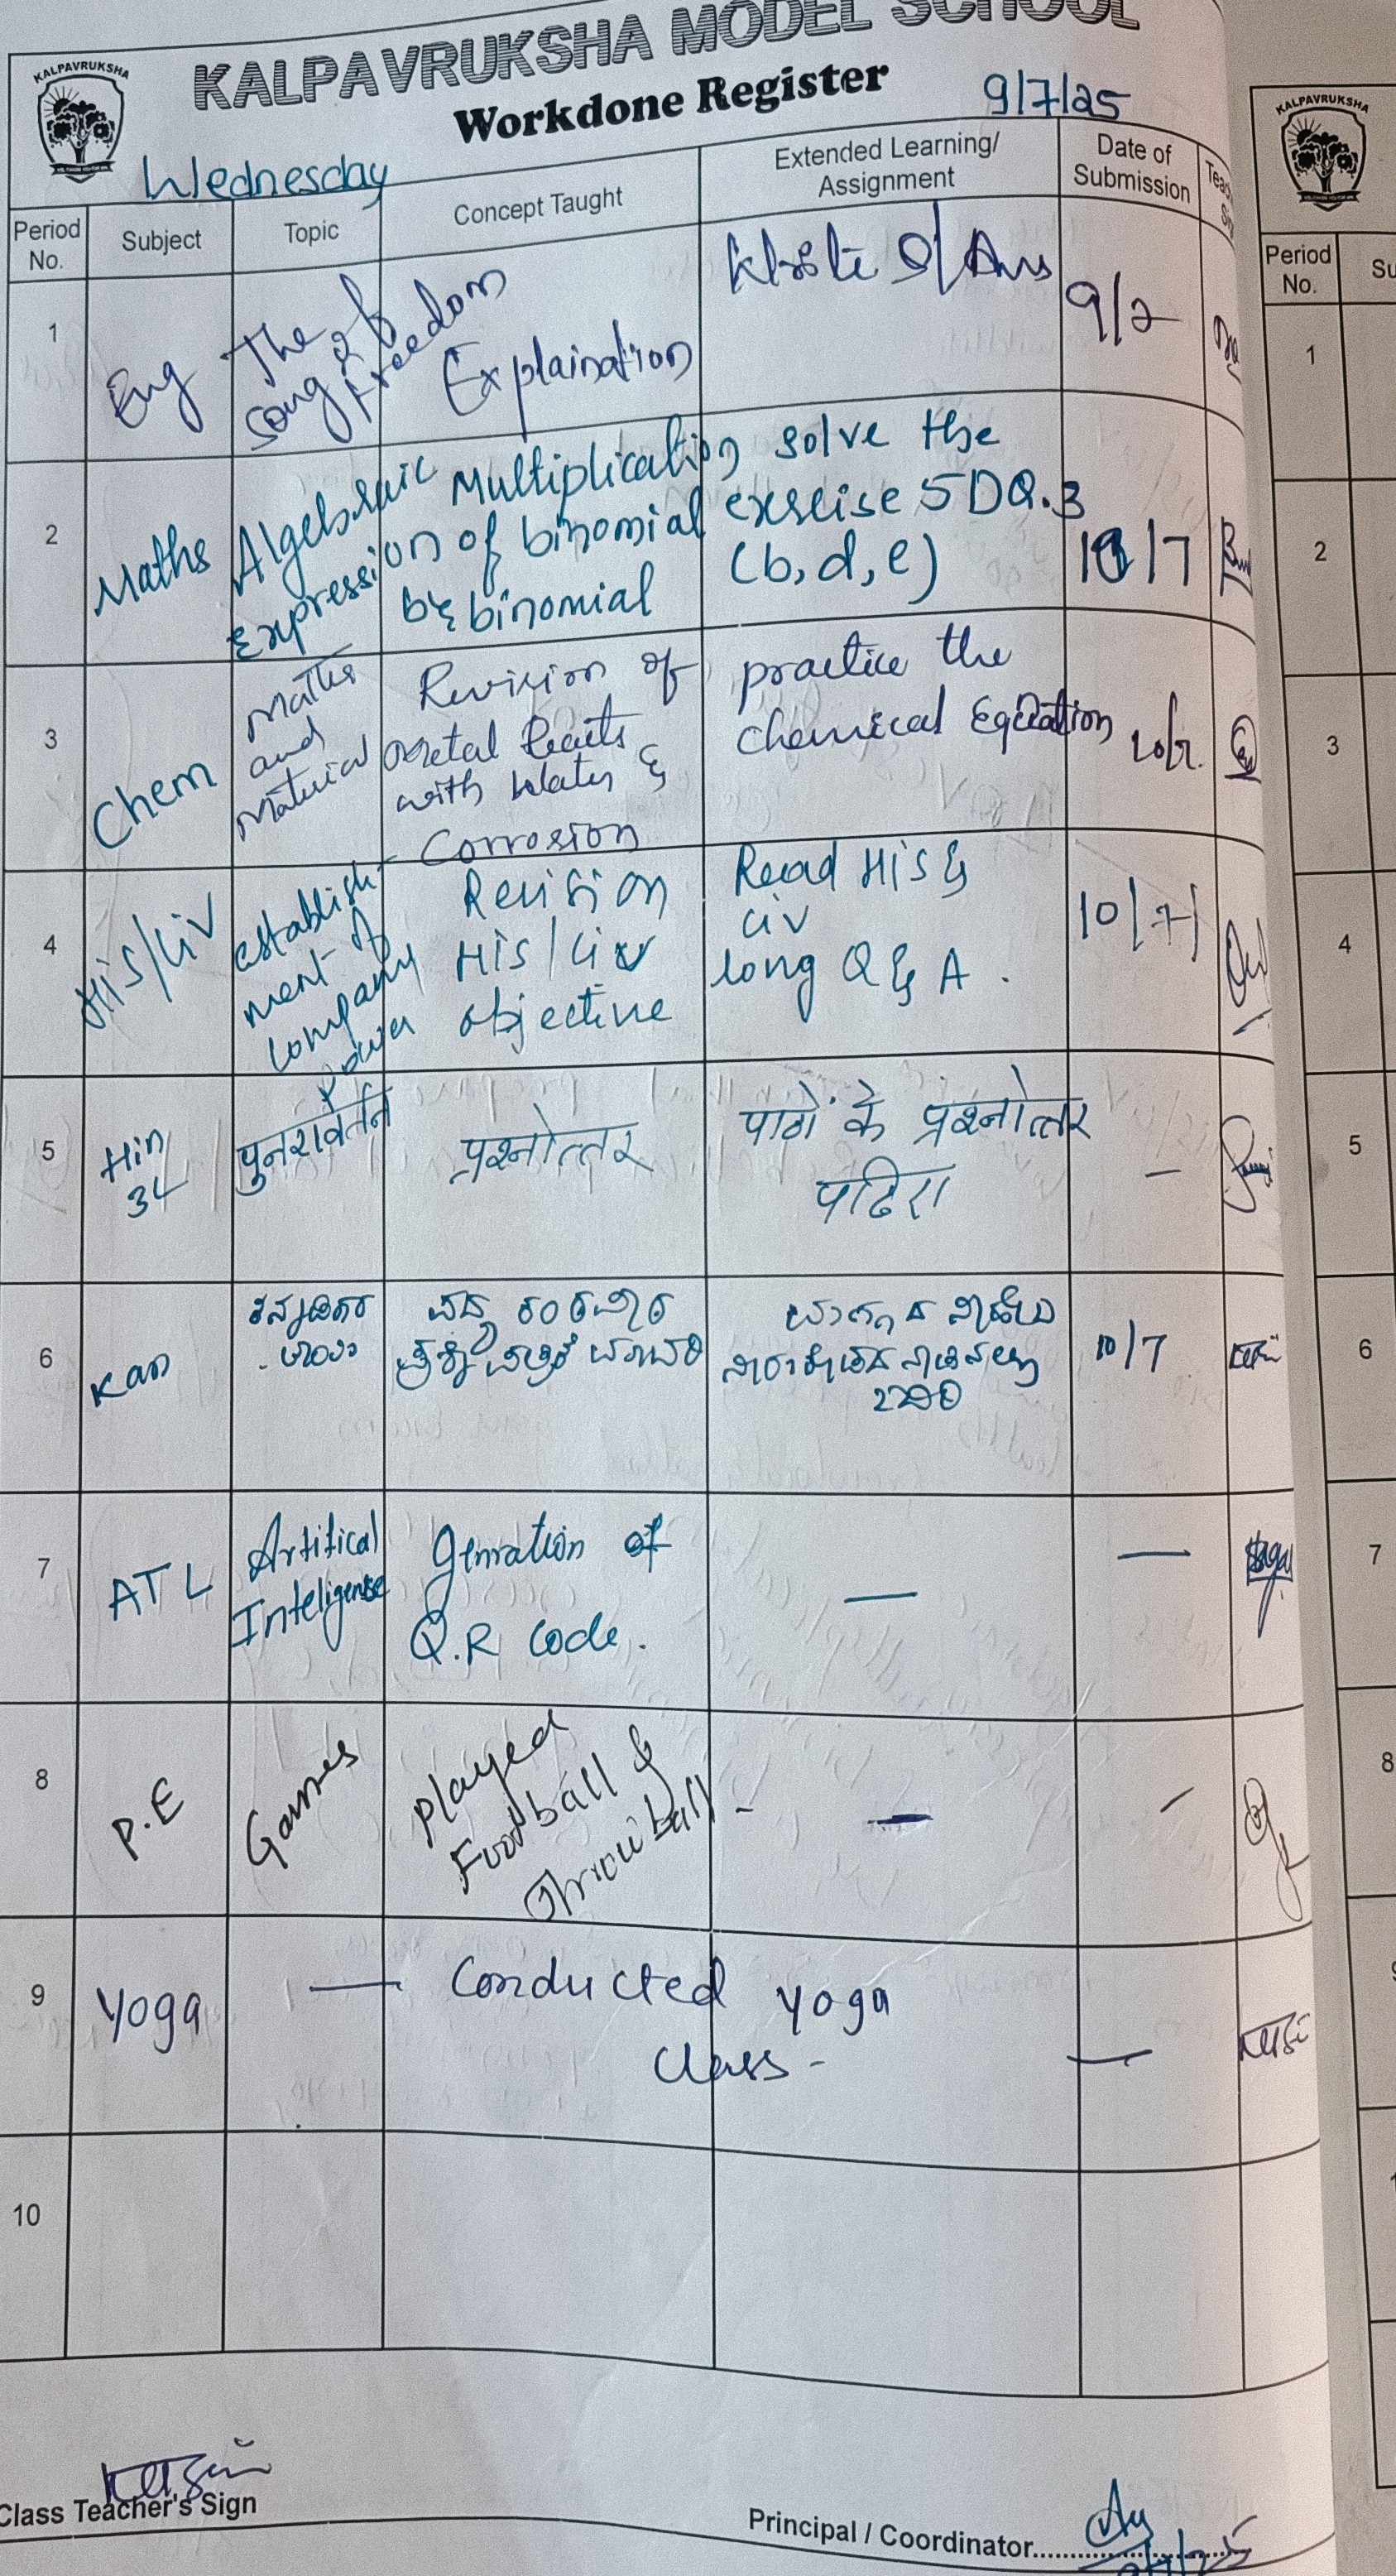 KALPAVRUKSHA MODEL SCHOOL
KALPAVRUKSHA
Workdone Register
9/7/25
Wednesday
Period No.
Subject
Topic
Concept Taught
Extended Learning/
Assignment
Date of
Submission
1
Eng
The
song of
freedom
Explaination
Write Q/Ans
2
Maths
Algebraic
Expression
Multiplication
of binomial
by binomial
solve the
exerise 5D Q.3
(b, d, e)
10/7
3
Chem
Maths
and
Material
Revision of
Metal Reacts
with Water &
Corrosion
practice the
chemical Equation
4
His/Civ
establish-
ment of
company
power
Revision
His/Civ
objective
Read His &
civ
long Q & A.
10/7
5
Hin
3L
पुनरावर्तन
प्रश्नोत्तर
पाठों के प्रश्नोत्तर
पढिए
6
Kan
10/7
7
ATL
Artifical
Inteligense
Genration of
Q.R Code.
8
P.E
Games
Played
Football &
Throwball
9
Yoga
Conducted yoga
class -
10
Class Teacher's Sign
Principal / Coordinator
KALPAVRUKSHA
Period
No.
Su
1
2
3
4
5
6
7
8